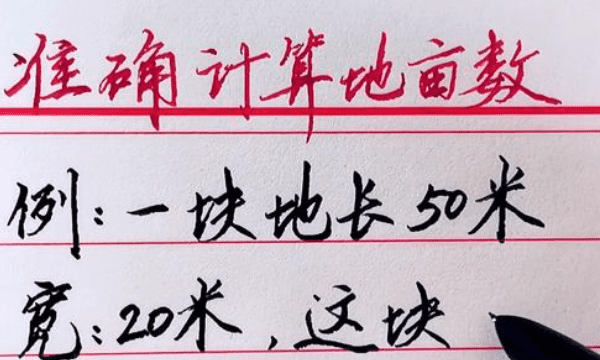 准确计算地亩数
例:一块地长50米
宽:20米,这块